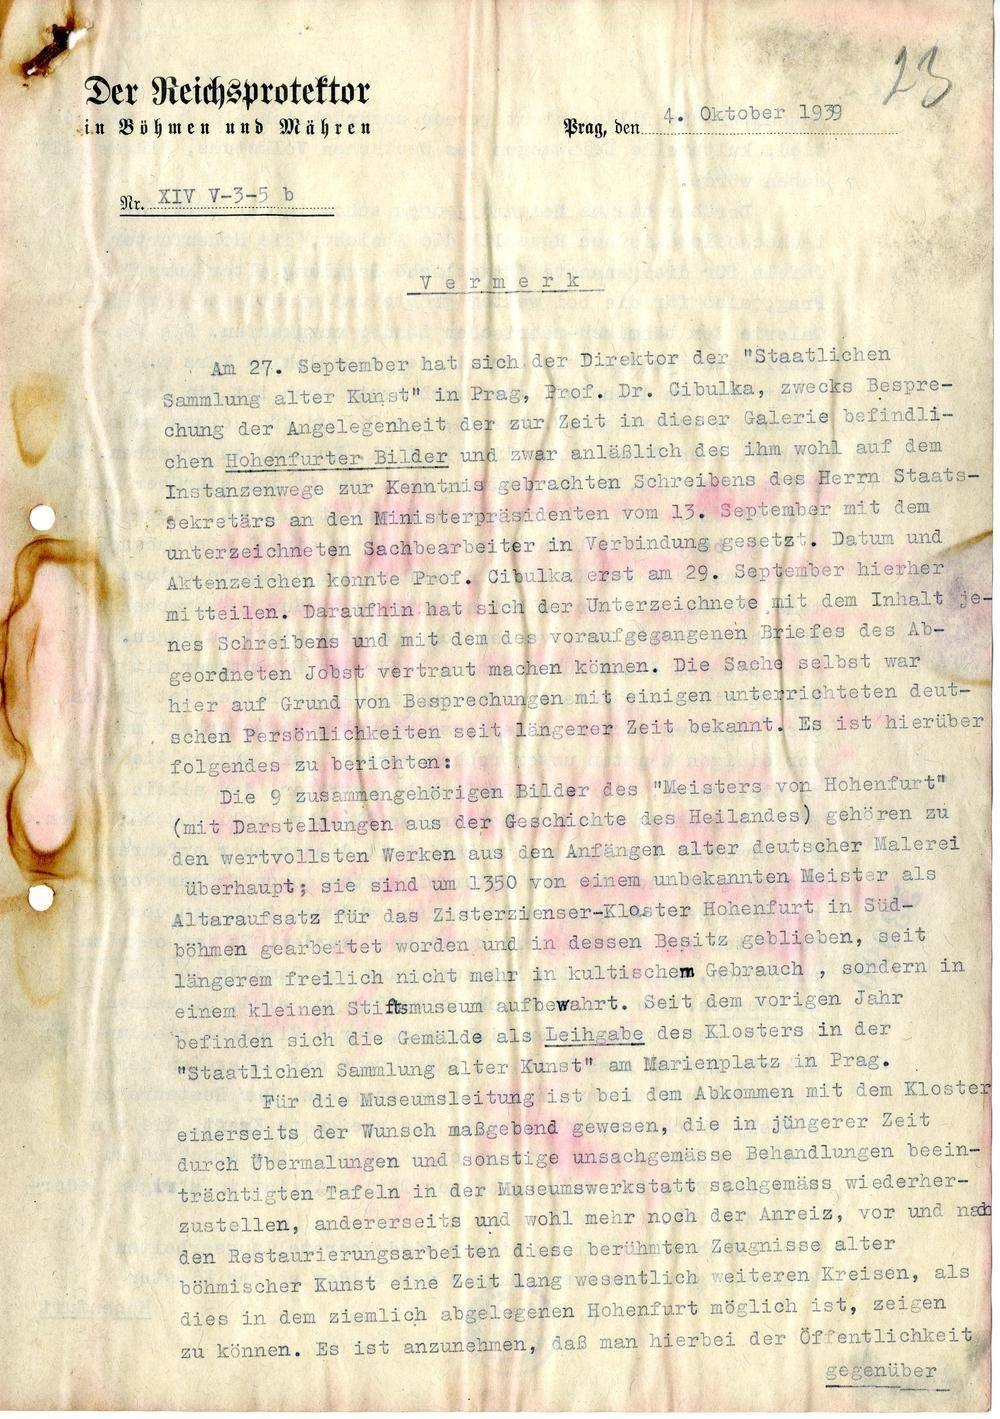 23
Der Reichsprotektor
in Böhmen und Mähren
Prag, den 4. Oktober 1939
Nr. XIV V-3-5 b
Vermerk
Am 27. September hat sich der Direktor der "Staatlichen
Sammlung alter Kunst" in Prag, Prof. Dr. Cibulka, zwecks Bespre-
chung der Angelegenheit der zur Zeit in dieser Galerie befindli-
chen Hohenfurter Bilder und zwar anläßlich des ihm wohl auf dem
Instanzenwege zur Kenntnis gebrachten Schreibens des Herrn Staats-
sekretärs an den Ministerpräsidenten vom 13. September mit dem
unterzeichneten Sachbearbeiter in Verbindung gesetzt. Datum und
Aktenzeichen konnte Prof. Cibulka erst am 29. September hierher
mitteilen. Daraufhin hat sich der Unterzeichnete mit dem Inhalt je-
nes Schreibens und mit dem des voraufgegangenen Briefes des Ab-
geordneten Jobst vertraut machen können. Die Sache selbst war
hier auf Grund von Besprechungen mit einigen unterrichteten deut-
schen Persönlichkeiten seit längerer Zeit bekannt. Es ist hierüber
folgendes zu berichten:
Die 9 zusammengehörigen Bilder des "Meisters von Hohenfurt"
(mit Darstellungen aus der Geschichte des Heilandes) gehören zu
den wertvollsten Werken aus den Anfängen alter deutscher Malerei
überhaupt; sie sind um 1350 von einem unbekannten Meister als
Altaraufsatz für das Zisterzienser-Kloster Hohenfurt in Süd-
böhmen gearbeitet worden und in dessen Besitz geblieben, seit
längerem freilich nicht mehr in kultischem Gebrauch , sondern in
einem kleinen Stiftsmuseum aufbewahrt. Seit dem vorigen Jahr
befinden sich die Gemälde als Leihgabe des Klosters in der
"Staatlichen Sammlung alter Kunst" am Marienplatz in Prag.
Für die Museumsleitung ist bei dem Abkommen mit dem Kloster
einerseits der Wunsch maßgebend gewesen, die in jüngerer Zeit
durch Übermalungen und sonstige unsachgemässe Behandlungen beein-
trächtigten Tafeln in der Museumswerkstatt sachgemäss wiederher-
zustellen, andererseits und wohl mehr noch der Anreiz, vor und nach
den Restaurierungsarbeiten diese berühmten Zeugnisse alter
böhmischer Kunst eine Zeit lang wesentlich weiteren Kreisen, als
dies in dem ziemlich abgelegenen Hohenfurt möglich ist, zeigen
zu können. Es ist anzunehmen, daß man hierbei der Öffentlichkeit
gegenüber